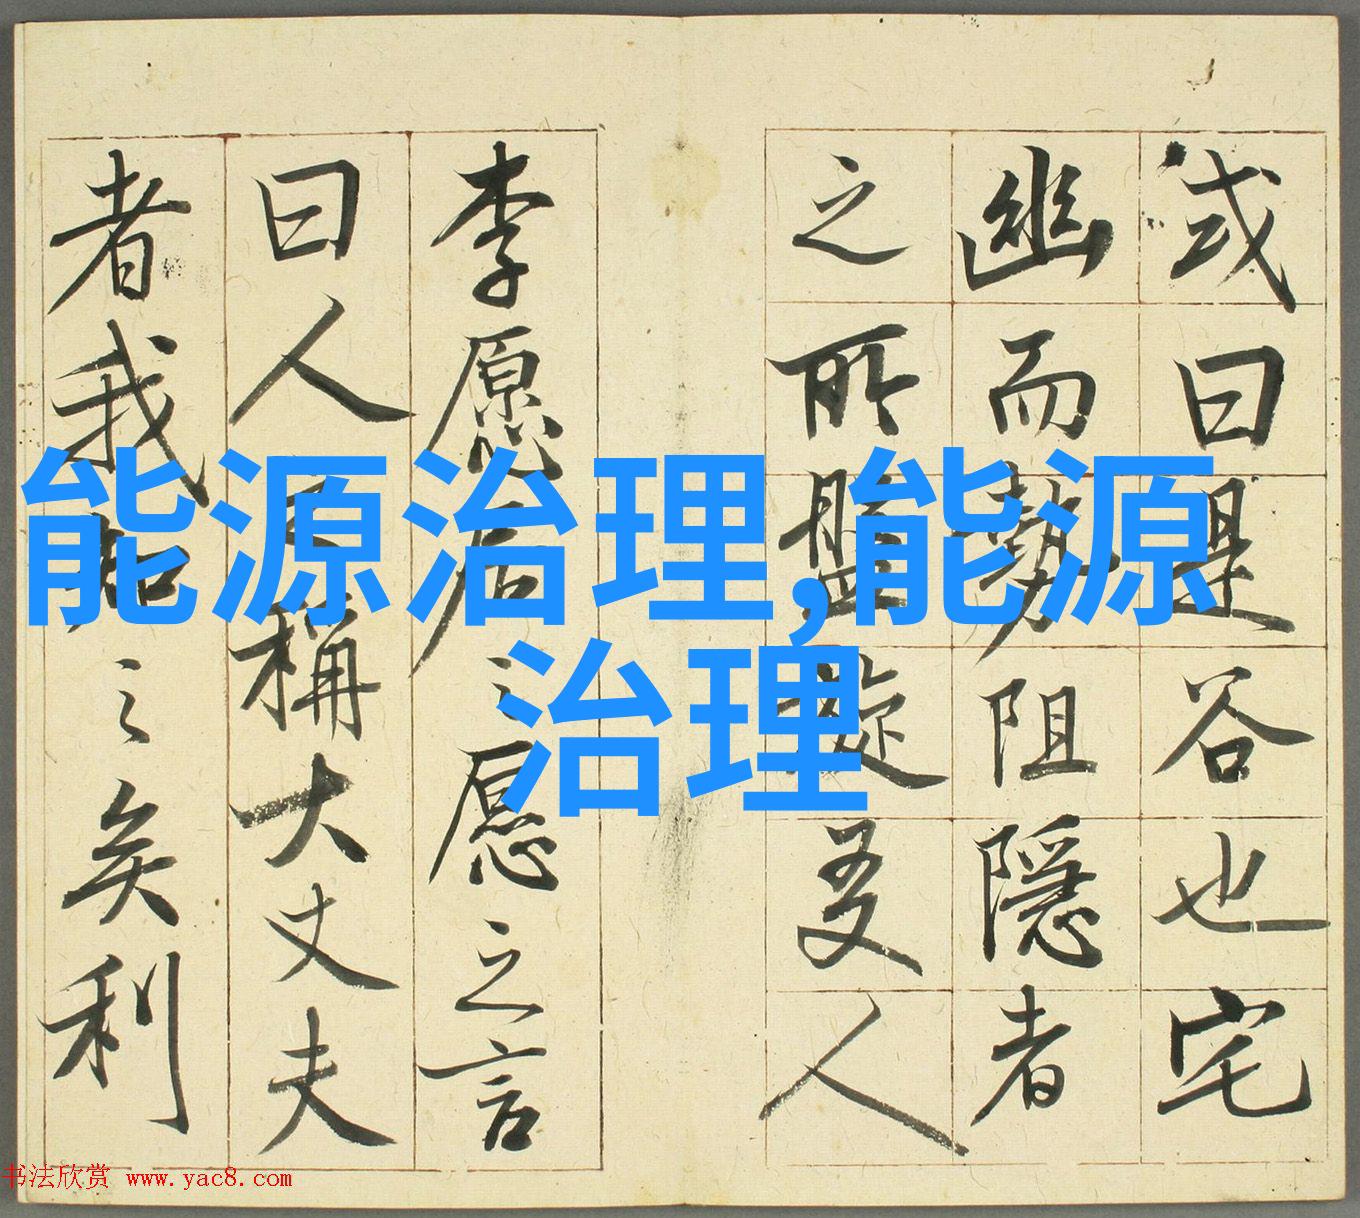 或曰是谷也宅
幽而勢阻隱者
之所盤旋友人
李愿居之愿之言
曰人之稱大丈夫
者我知之矣利
能源治理,能源
治理
书法欣赏 www.yac8.com